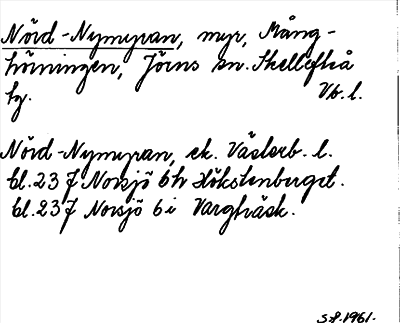 Nörd-Nymyran, myr, Mång-
hörningen, Jörns sn. Skellefteå
tg. Vb. l.
Nörd-Nymyran, ek. Västerb. l.
bl. 23 J Norsjö 6h Hökstenberget.
bl. 23 J Norsjö 6i Vargträsk.
S.P. 1961.